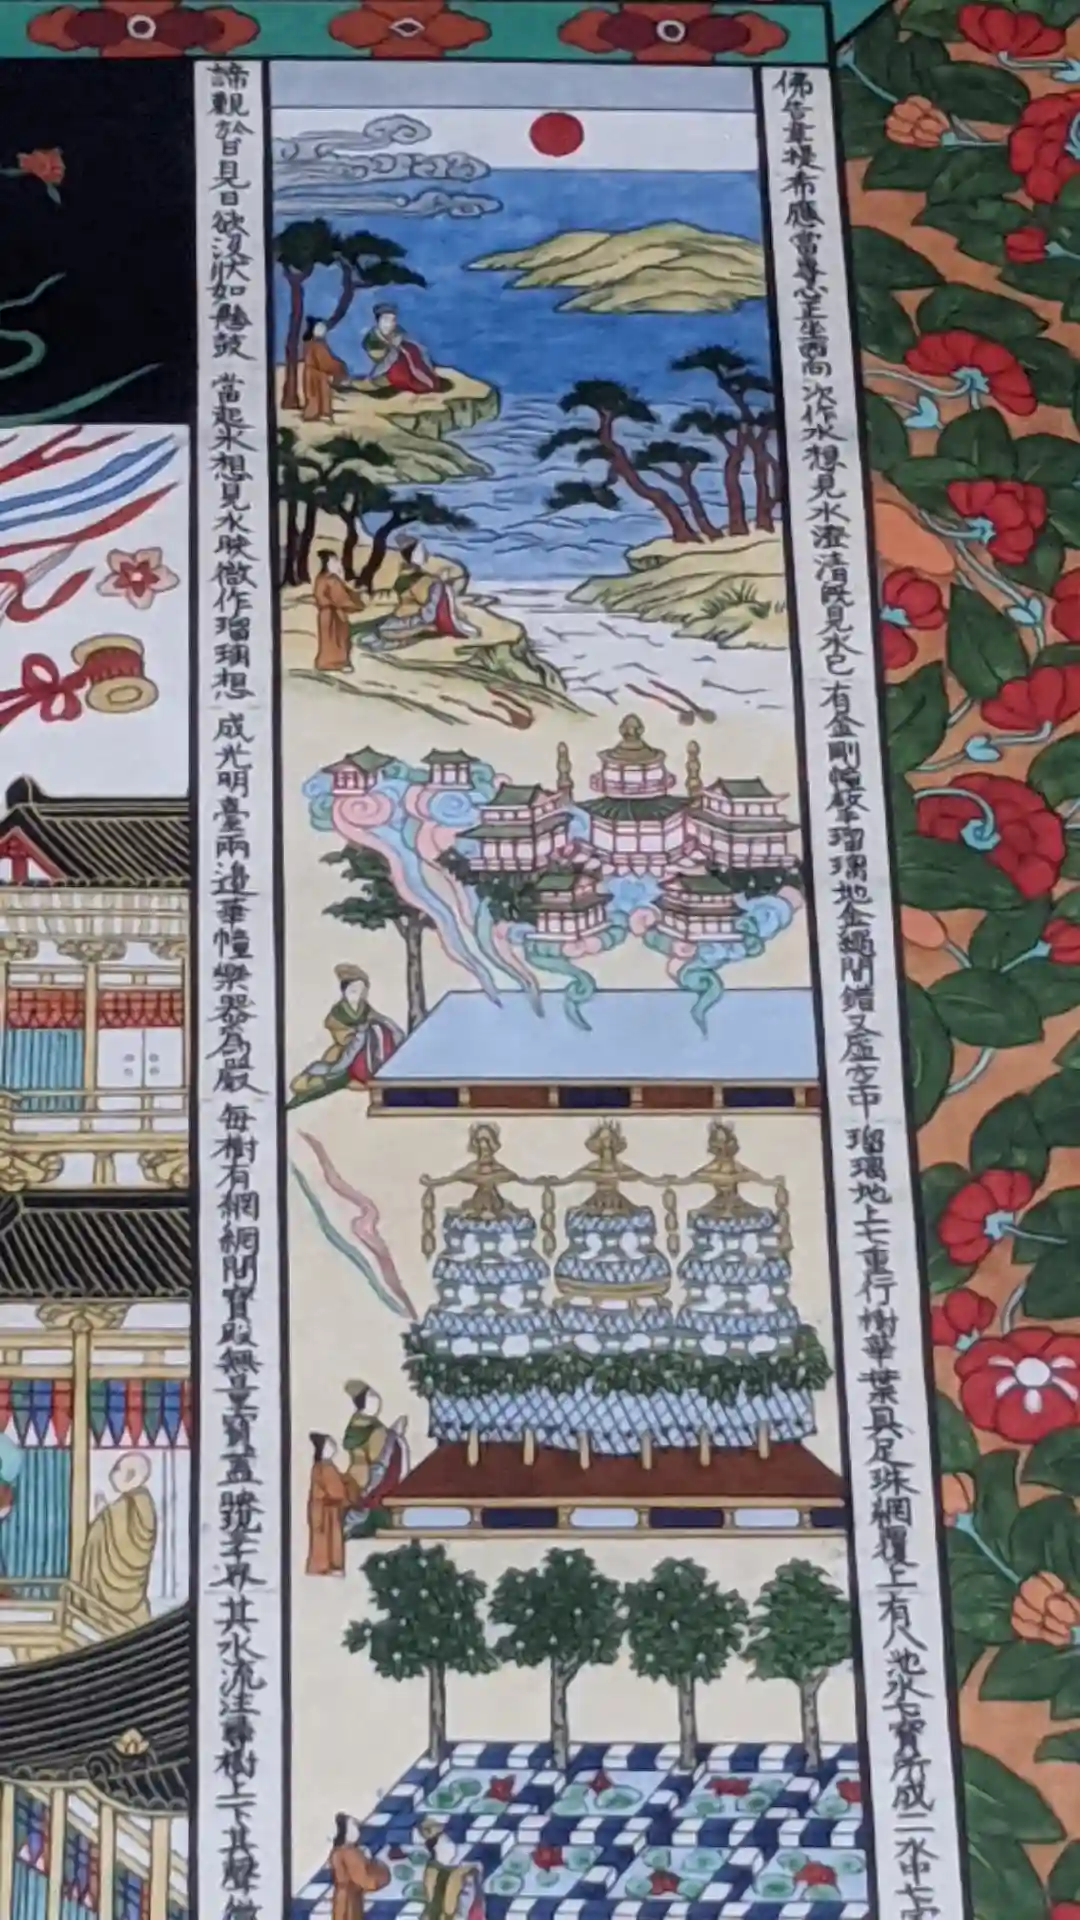 佛告韋提希應當專心正坐西向
次作水想見水澄清旣見水已
有金剛幢擎瑠璃地金繩間錯又虛空中
瑠璃地上七重行樹華葉具足珠網覆上
有八池水七寶所成一水中七
諦觀皆見日欲沒狀如懸鼓
當起氷想見氷映徹作瑠璃想
成光明臺兩邊華幢樂器爲嚴
每樹有網網間寶殿無量寶盖映現
其水流注尋樹上下其聲微